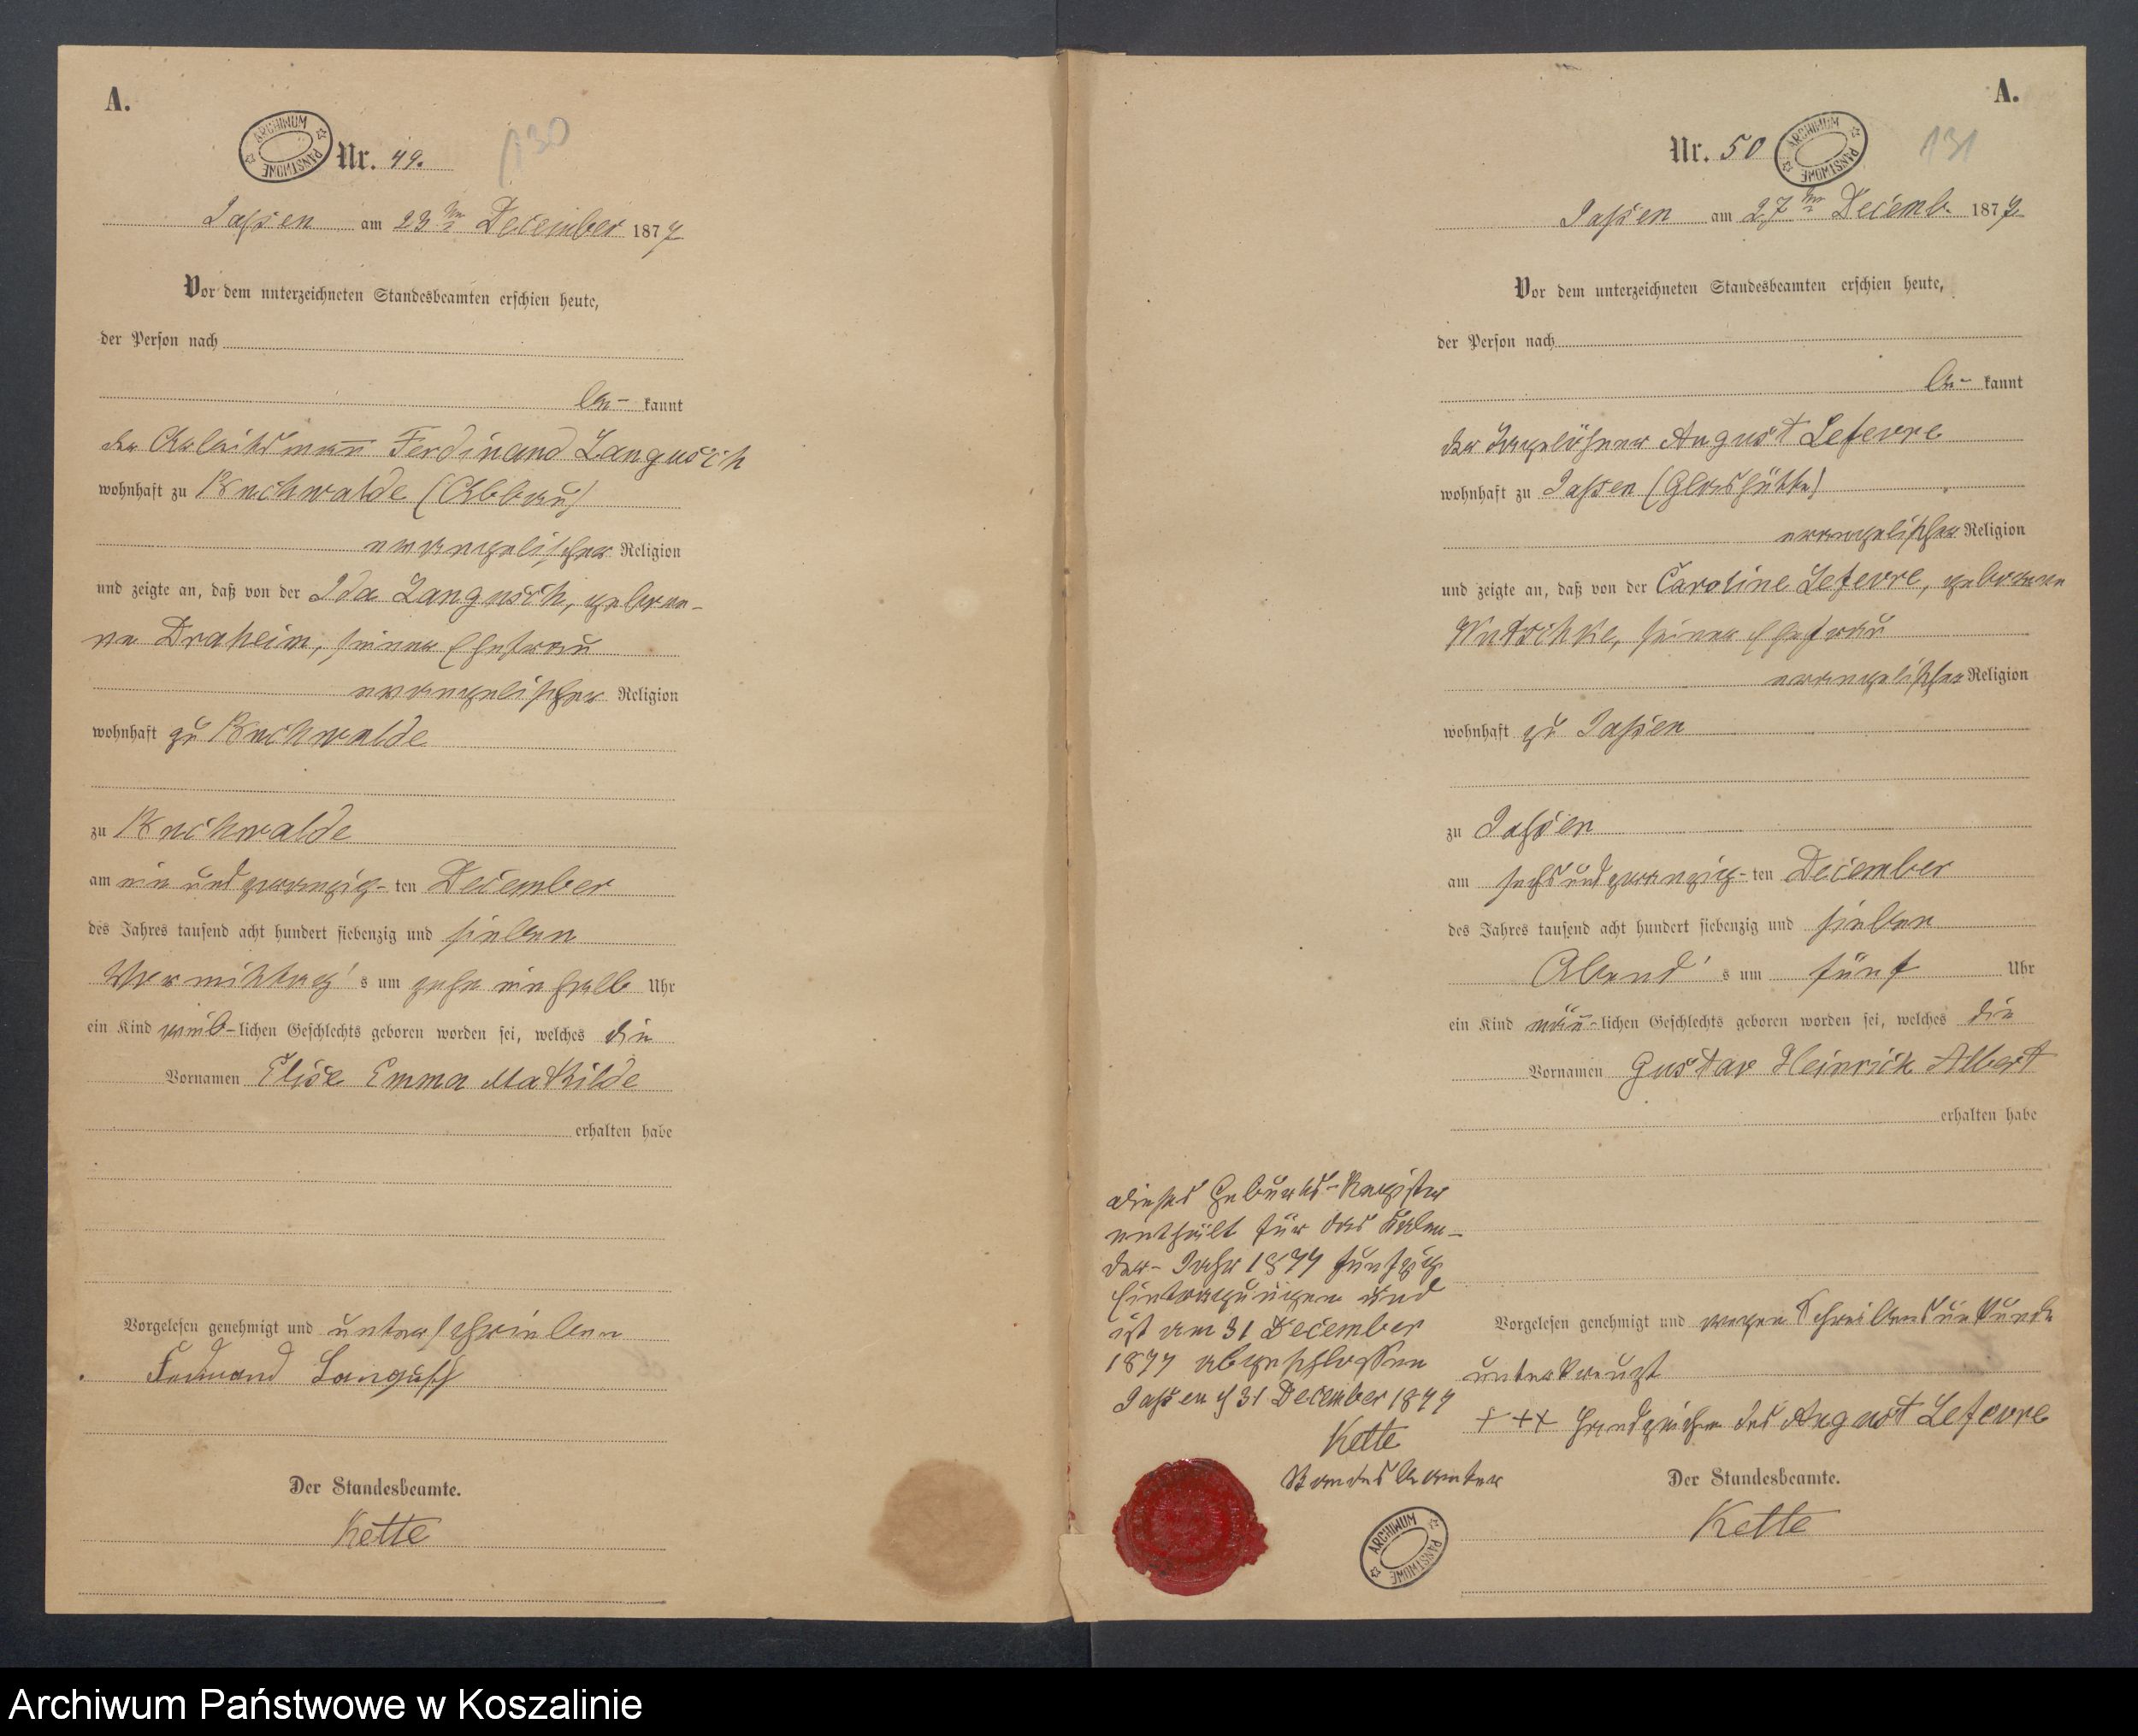 A.
ARCHIWUM PAŃSTWOWE
Nr. 49.
130
Jassen am 23ten December 1877
Vor dem unterzeichneten Standesbeamten erschien heute,
der Person nach
be- kannt
der Arbeitsmann Ferdinand Langusch
wohnhaft zu Buchwalde (Abbau)
evangelischer Religion
und zeigte an, daß von der Ida Langusch, gebore-
ne Draheim, seiner Ehefrau
evangelischer Religion
wohnhaft zu Buchwalde
zu Buchwalde
am ein und zwanzig- ten December
des Jahres tausend acht hundert siebenzig und sieben
Vormittag's um zehn ein halb Uhr
ein Kind weib-lichen Geschlechts geboren worden sei, welches die
Vornamen Elise Emma Mathilde
erhalten habe
Vorgelesen genehmigt und unterschrieben
Ferdinand Langusch
Der Standesbeamte.
Kette
A.
Nr. 50
ARCHIWUM PAŃSTWOWE
131
Jassen am 27ten Decemb. 1877
Vor dem unterzeichneten Standesbeamten erschien heute,
der Person nach
be- kannt
der Tagelöhner August Lefevre
wohnhaft zu Jassen (Glashütte)
evangelischer Religion
und zeigte an, daß von der Caroline Lefevre, geborene
Wutschke, seiner Ehefrau
evangelischer Religion
wohnhaft zu Jassen
zu Jassen
am sechs und zwanzig- ten December
des Jahres tausend acht hundert siebenzig und sieben
Abend's um fünf Uhr
ein Kind män̄-lichen Geschlechts geboren worden sei, welches die
Vornamen Gustav Heinrich Albert
erhalten habe
Vorgelesen genehmigt und wegen Schreibensunkunde
unterkreuzt
+ + + Handzeichen des August Lefevre
Der Standesbeamte.
Kette
Dieses Geburts-Register
enthält für das Kalen-
der-Jahr 1877 funfzig
Eintragungen und
ist am 31 December
1877 abgeschlossen
Jassen d 31 December 1877
Kette
Standesbeamter
ARCHIWUM PAŃSTWOWE
Archiwum Państwowe w Koszalinie